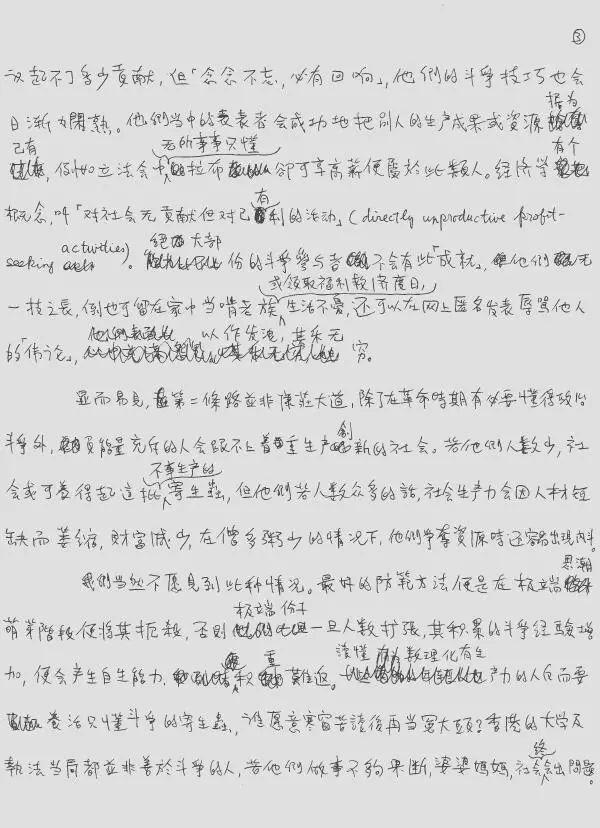 ③
议起不了多少贡献，但「念念不忘，必有回响」，他們的斗爭技巧也会
日漸内閑熟。他們当中的表表者会成功地把別人的生产成果或資源 据为
己有，例如立法会中 无所事事只懂 拉布 卻可享高薪便屬於此類人。經济学 有个
概念，叫「对社会无貢献但对己有利的活动」(directly unproductive profit-
seeking activities)。絕大部份的斗爭參与者 不会有此「成就」，他們 无
一技之長，倒也可留在家中当啃老族 或領取福利救濟度日，生活不憂，还可以在网上匿名发表辱罵他人
的「伟论」，以作发泄，其乐无穷。
显而易見，第二條路並非康莊大道，除了在革命時期有必要懂得政治
斗爭外，負能量充斥的人会跟不上着重生产創新的社会。若他們人数少，社
会或可養得起這批 不事生产的 寄生蟲，但他們若人数众多的話，社会生产力会因人材短
缺而萎缩，財富減少，在僧多粥少的情况下，他們爭奪資源時还容易出現内斗。
我們当然不愿見到此种情况。最好的防範方法便是在极端思潮
萌芽階段便將其扼殺，否則 极端份子 一旦人数扩张，其积累的斗爭经驗增
加，便会产生自生能力，积重難返。讀懂 数理化有生产力的人反而要
養活只懂斗爭的寄生蟲，谁愿意寒窗苦讀後再当冤大頭？香港的大学及
執法当局都並非善於斗爭的人，若他們做事不夠果断，婆婆媽媽，社会終会出問題。